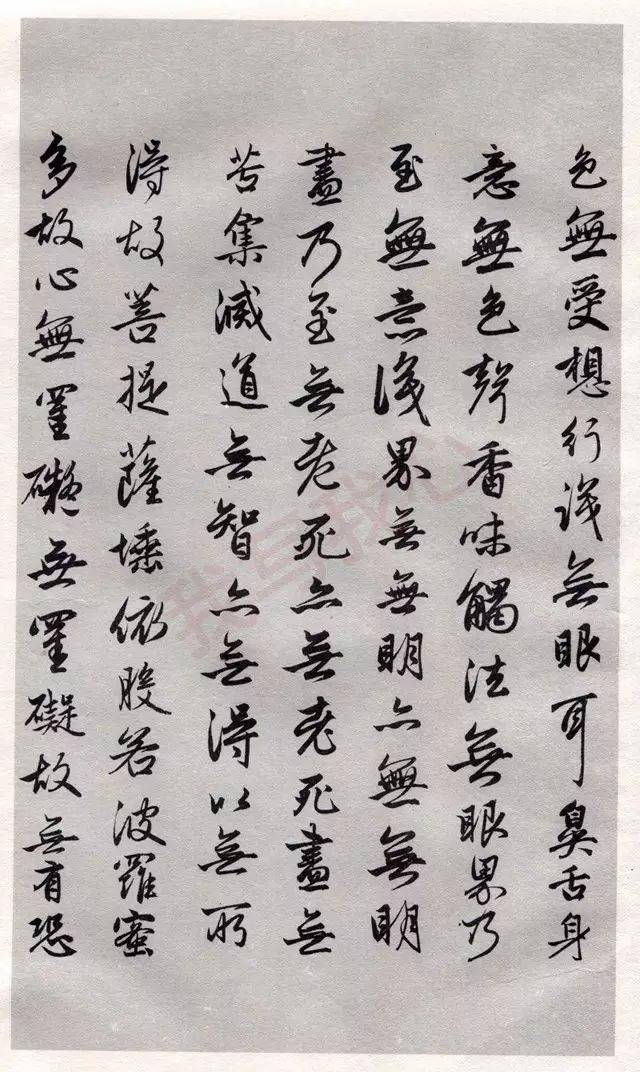 色無受想行識無眼耳鼻舌身
意無色聲香味觸法無眼界乃
至無意識界無無明亦無無明
盡乃至無老死亦無老死盡無
苦集滅道無智亦無得以無所
得故菩提薩埵依般若波羅蜜
多故心無罣礙無罣礙故無有恐
我写我心